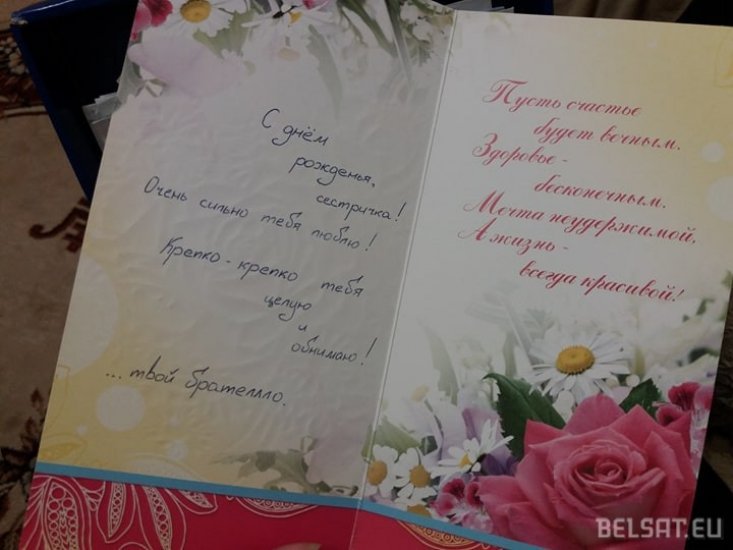 С днём
рожденья,
сестричка!
Очень сильно тебя люблю!
Крепко-крепко тебя
целую
и
обнимаю!
...твой брателлло.
Пусть счастье
будет вечным,
Здоровье -
бесконечным,
Мечта неудержимой,
А жизнь -
всегда красивой!
BELSAT.EU